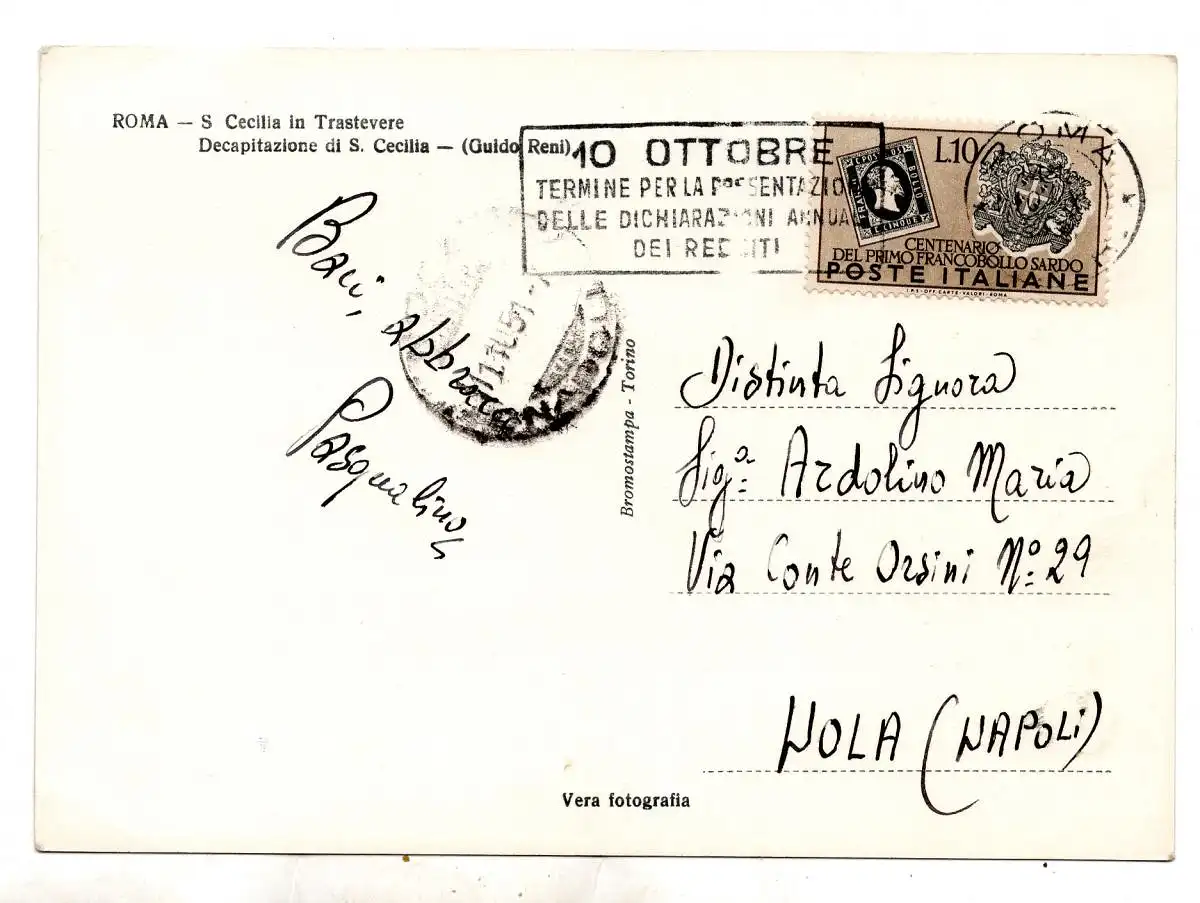 ROMA — S Cecilia in Trastevere
Decapitazione di S. Cecilia — (Guido Reni)
10 OTTOBRE
TERMINE PER LA PRESENTAZIO
DELLE DICHIARAZIONI ANNUA
DEI REDDITI
ROMA
C. POSTE
FRANCO
BOLLO
C. CINQUE
L.10
CENTENARIO
DEL PRIMO FRANCOBOLLO SARDO
POSTE ITALIANE
I.P.S.-OFF. CARTE-VALORI-ROMA
Baci, abbracci
Pasqualino
11.10.51
Bromostampa - Torino
Distinta Signora
Sig.a Ardolino Maria
Via Conte Orsini No. 29
NOLA (NAPOLI)
Vera fotografia